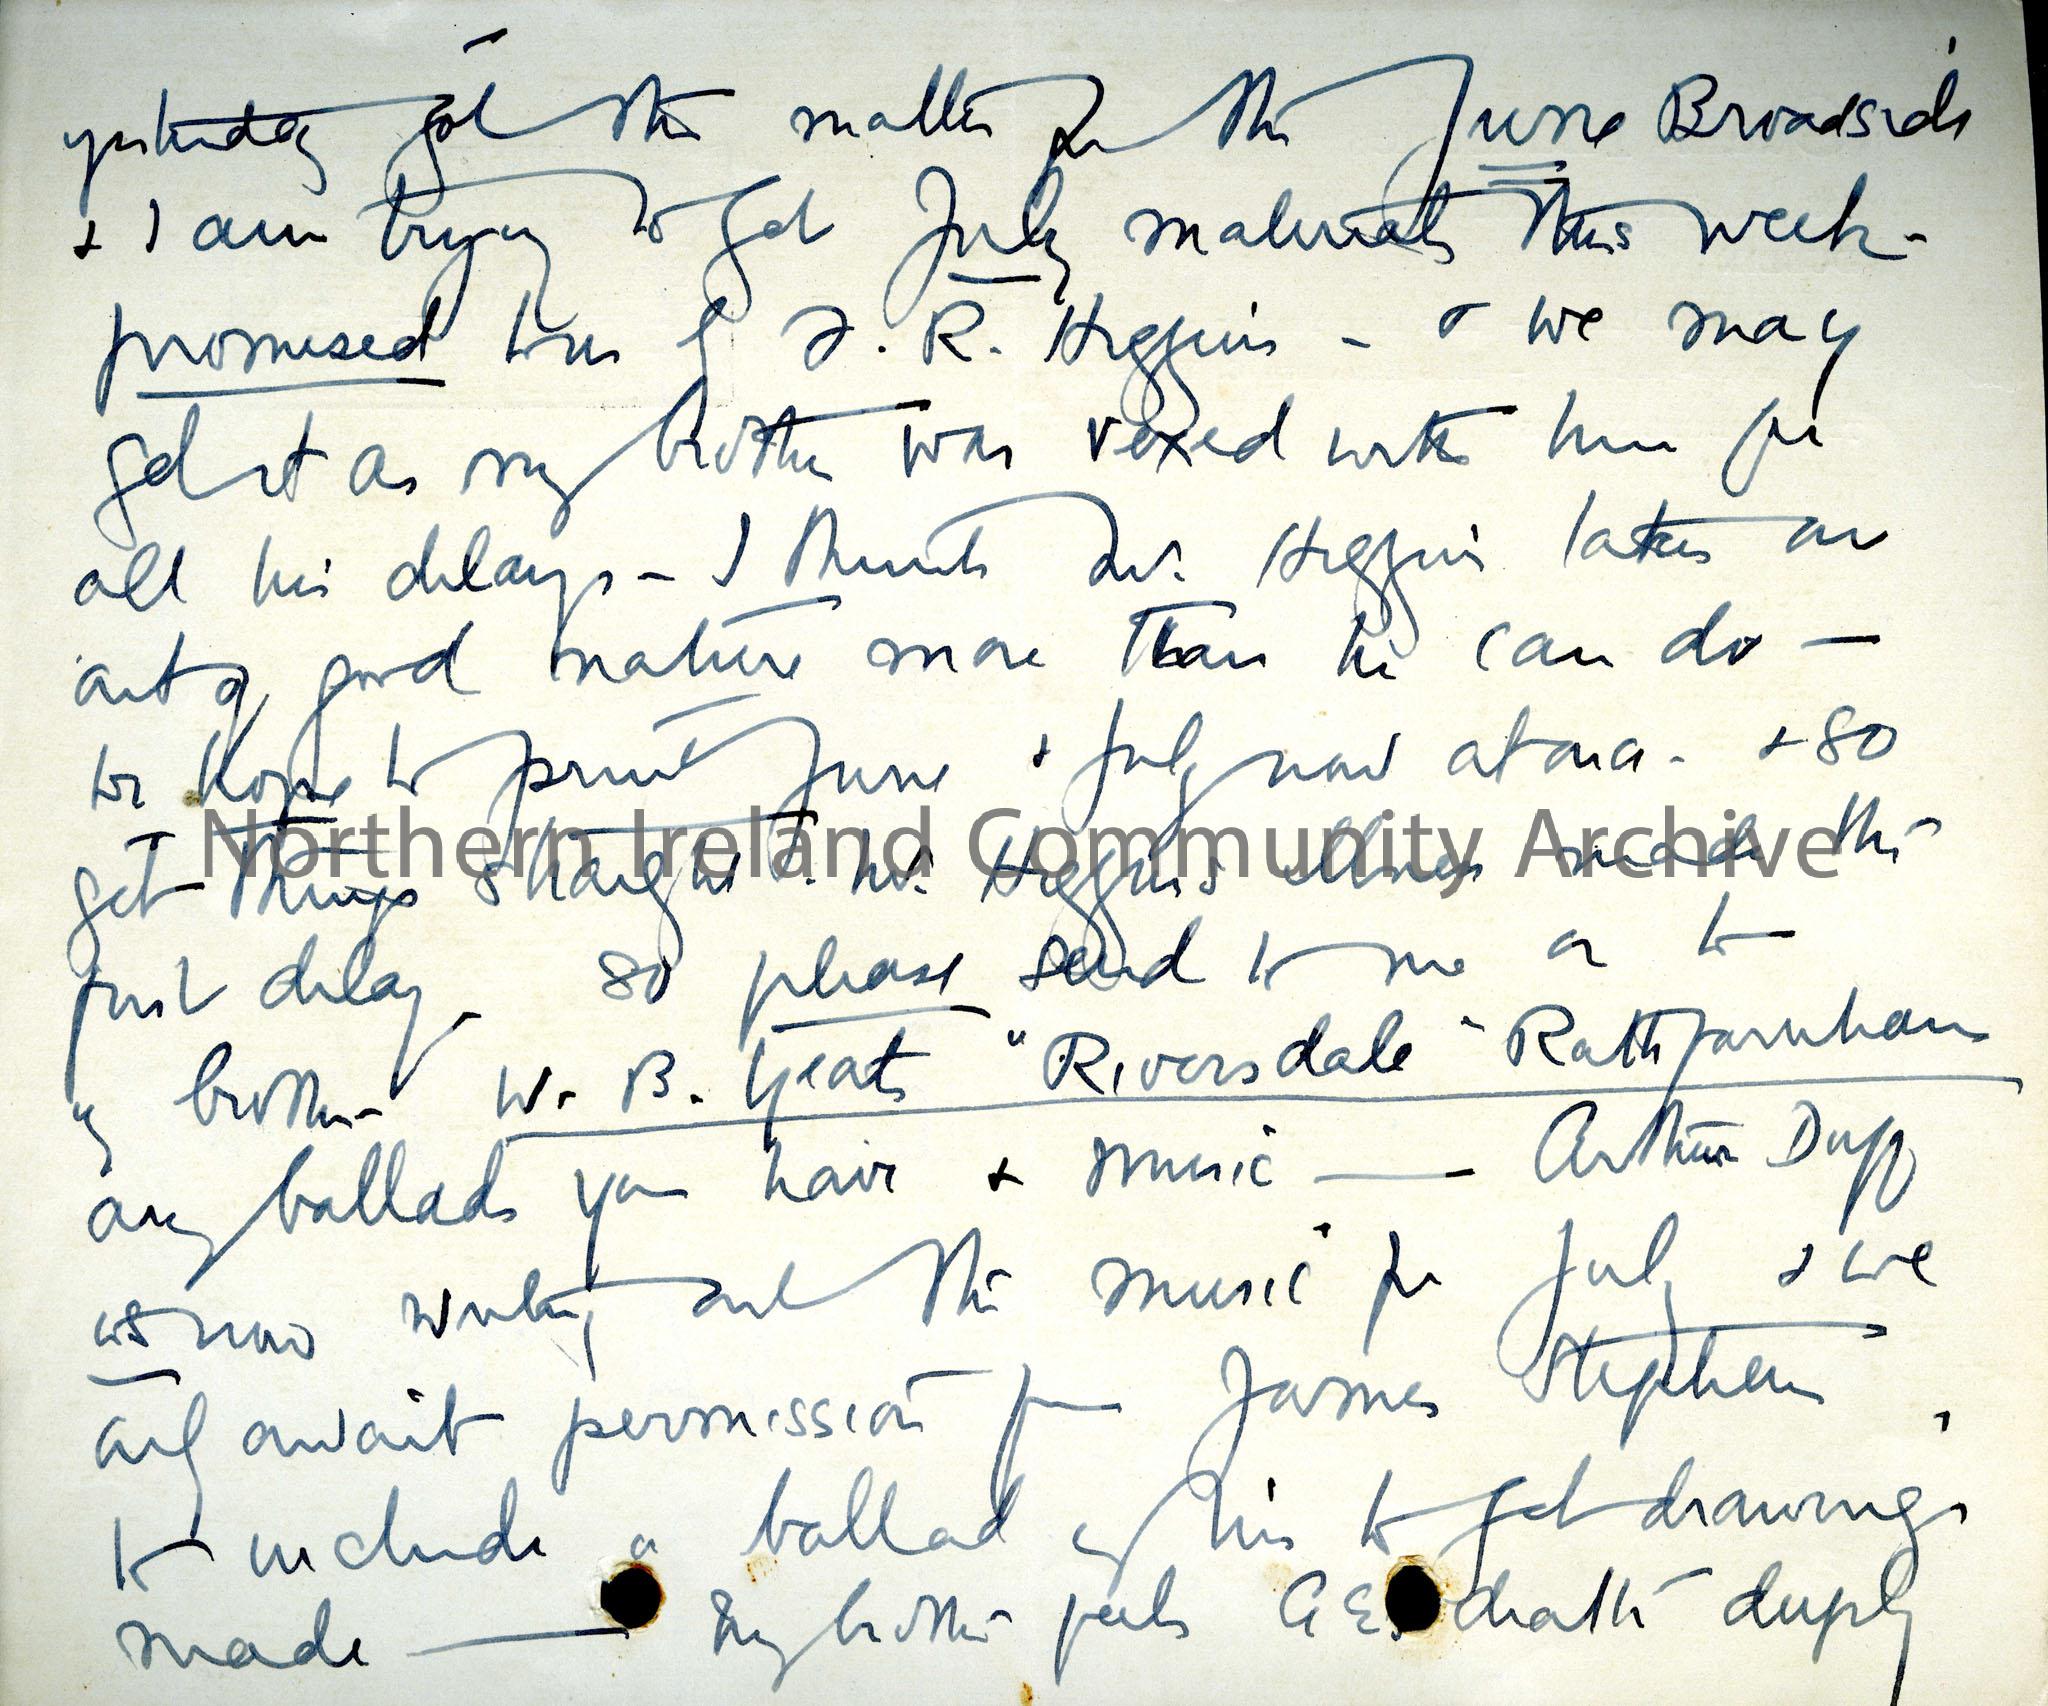 yesterday got the matter for the June Broadside
+ I am trying to get July materials this week -
promised us of F. R. Higgins - & we may
get it as my brother was vexed with him for
all his delays - I think Mr. Higgins takes on
out of good nature more than he can do —
we hope to print June + July now at once - + so
get things straight. Mr. Higgins illness made the
first delay - so please send to me or to
my brother W. B. Yeats "Riversdale" Rathfarnham
any ballads you have + music — Arthur Duff
is now writing out the music for July + we
only await permission from James Stephens
to include a ballad of his to get drawings
made — My brother feels AEs death deeply
Northern Ireland Community Archive